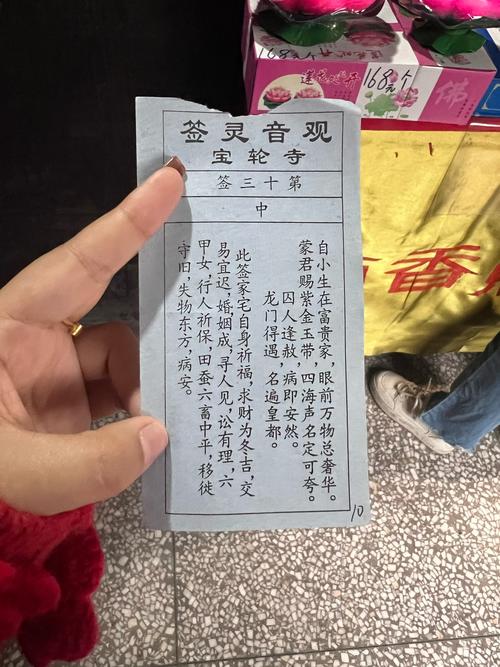 168元个
168元/个
佛
香
观音灵签
宝轮寺
第十三签
中
自小生在富贵家，眼前万物总奢华。
蒙君赐紫金玉带，四海声名定可夸。
囚人逢赦，病即安然。
龙门得遇，名遍皇都。
此签家宅自身祈福，求财为冬吉，交
易宜迟，婚姻成，寻人见，讼有理，六
甲女，行人祈保，田蚕六畜中平，移徙
守旧，失物东方，病安。
10